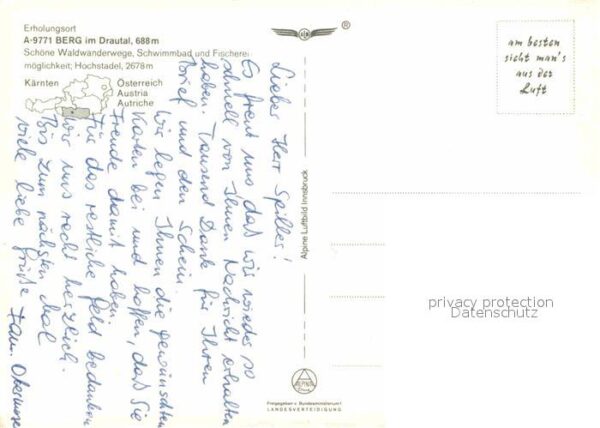 Erholungsort
A-9771 BERG im Drautal, 688m
Schöne Waldwanderwege, Schwimmbad und Fischerei-
möglichkeit; Hochstadel, 2678m
Kärnten
Österreich
Austria
Autriche
Lieber Herr Spiller!
Es freut uns daß wir wieder so
schnell von Ihnen Nachricht erhalten
haben. Tausend Dank für Ihren
Brief und den Schein.
Wir legen Ihnen die gewünschten
Karten bei und hoffen, daß Sie
Freude damit haben.
Für das restliche Geld bedanken
wir uns recht herzlich.
Bis zum nächsten Mal
viele liebe Grüße Fam. Obermoser
Alpine Luftbild Innsbruck
ALPINE
Freigegeben v. Bundesministerium f.
LANDESVERTEIDIGUNG
®
am besten
sieht man's
aus der
Luft
privacy protection
Datenschutz